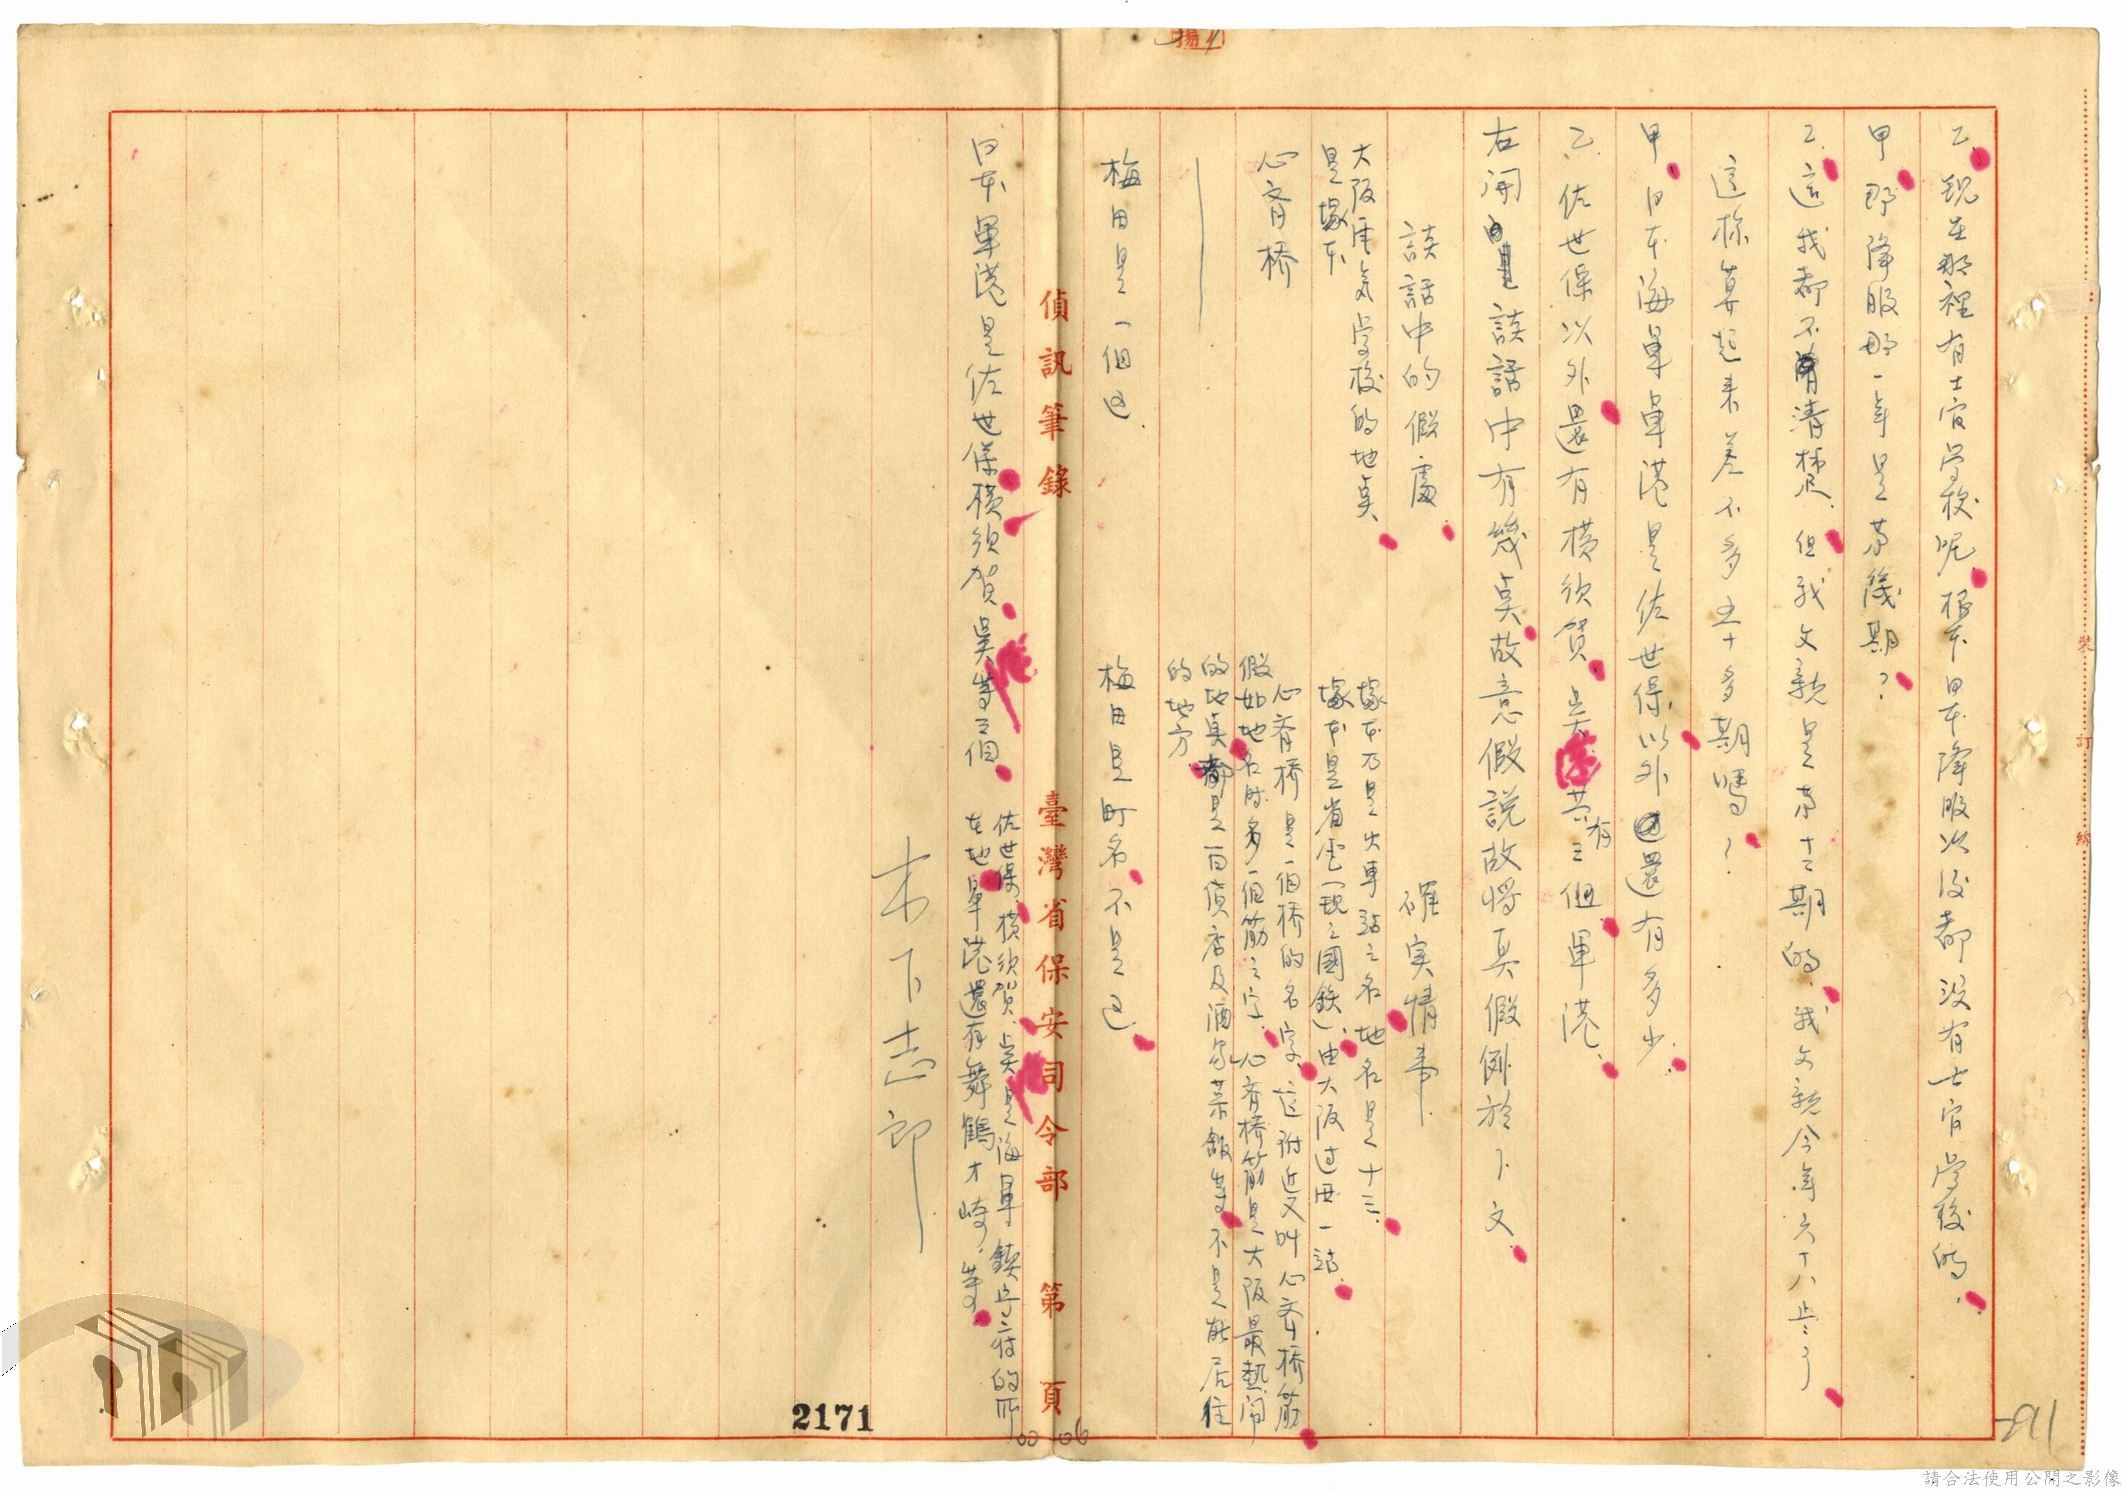 乙、現在那裡有士官学校呢、根本日本降服以後都没有士官学校的、
甲、那降服那一年是第幾期？
乙、這我都不清楚、但我父親是第十二期的、我父親今年六十八歲了
這樣算起来差不多五十多期嗎？
甲、日本海軍軍港是佐世保以外還有多少、
乙、佐世保以外還有横須賀、吳共有三個軍港、
右開談話中有幾点故意假說故將真假例於下文、
談話中的假處、
確実情事、
大阪電気学校的地点
是塚本
塚本乃是火車站之名地名是十三、
塚本是省電（現之國鉄）、由大阪过西一站、
心斉橋
心斉橋是一個橋的名字、这附近又叫心斉橋筋
假如地名時多一個筋之字、心斉橋筋是大阪最熱鬧
的地点都是百貨店及酒家菜館等不是能居住
的地方、
梅田是一個区、
梅田是町名、不是区、
偵訊筆錄 臺灣省保安司令部 第 頁
日本軍港是佐世保、横須賀、吳等三個、
佐世保、横須賀、吳是海軍鎮守府的所
在地、軍港還有舞鶴、大崎、等、
木下志郎
2171
00 06
請合法使用公開之影像